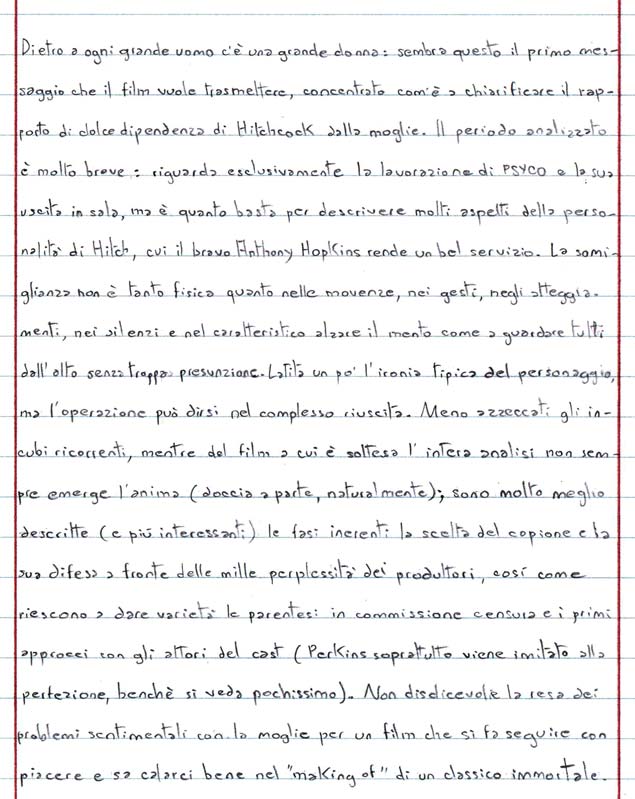 Dietro a ogni grande uomo c'è una grande donna: sembra questo il primo mes-
saggio che il film vuole trasmettere, concentrato com'è a chiarificare il rap-
porto di dolce dipendenza di Hitchcock dalla moglie. Il periodo analizzato
è molto breve: riguarda esclusivamente la lavorazione di PSYCO e la sua
uscita in sala, ma è quanto basta per descrivere molti aspetti della perso-
nalità di Hitch, cui il bravo Anthony Hopkins rende un bel servizio. La somi-
glianza non è tanto fisica quanto nelle movenze, nei gesti, negli atteggia-
menti, nei silenzi e nel caratteristico alzare il mento come a guardare tutti
dall'alto senza troppa presunzione. Latita un po' l'ironia tipica del personaggio,
ma l'operazione può dirsi nel complesso riuscita. Meno azzeccati gli in-
cubi ricorrenti, mentre del film a cui è sottesa l'intera analisi non sem-
pre emerge l'anima (doccia a parte, naturalmente); sono molto meglio
descritte (e più interessanti) le fasi inerenti la scelta del copione e la
sua difesa a fronte delle mille perplessità dei produttori, così come
riescono a dare varietà le parentesi in commissione censura e i primi
approcci con gli attori del cast (Perkins soprattutto viene imitato alla
perfezione, benchè si veda pochissimo). Non disdicevole la resa dei
problemi sentimentali con la moglie per un film che si fa seguire con
piacere e sa calarci bene nel "making of" di un classico immortale.